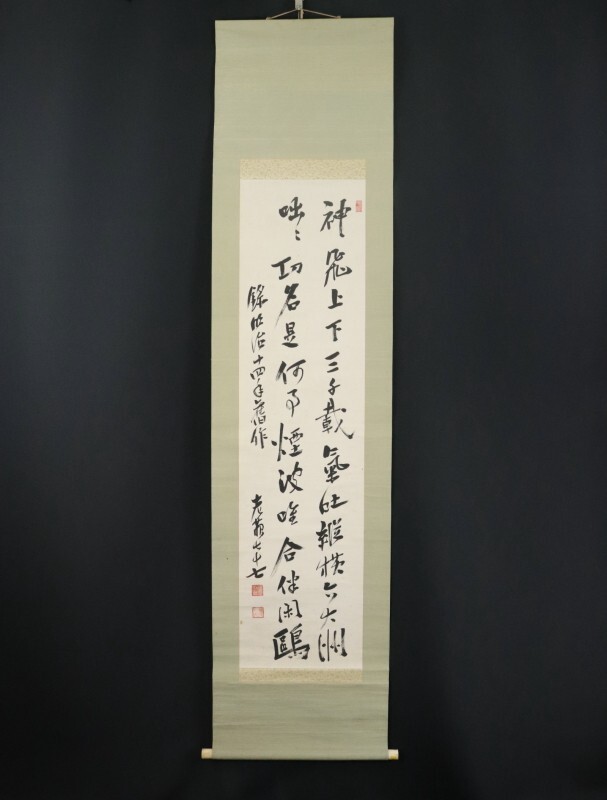 神飛上下三千載氣壯縱横六大洲
咄々功名是何事煙波唯合伴閑鷗
錄明治十四年舊作
老蘇七十七